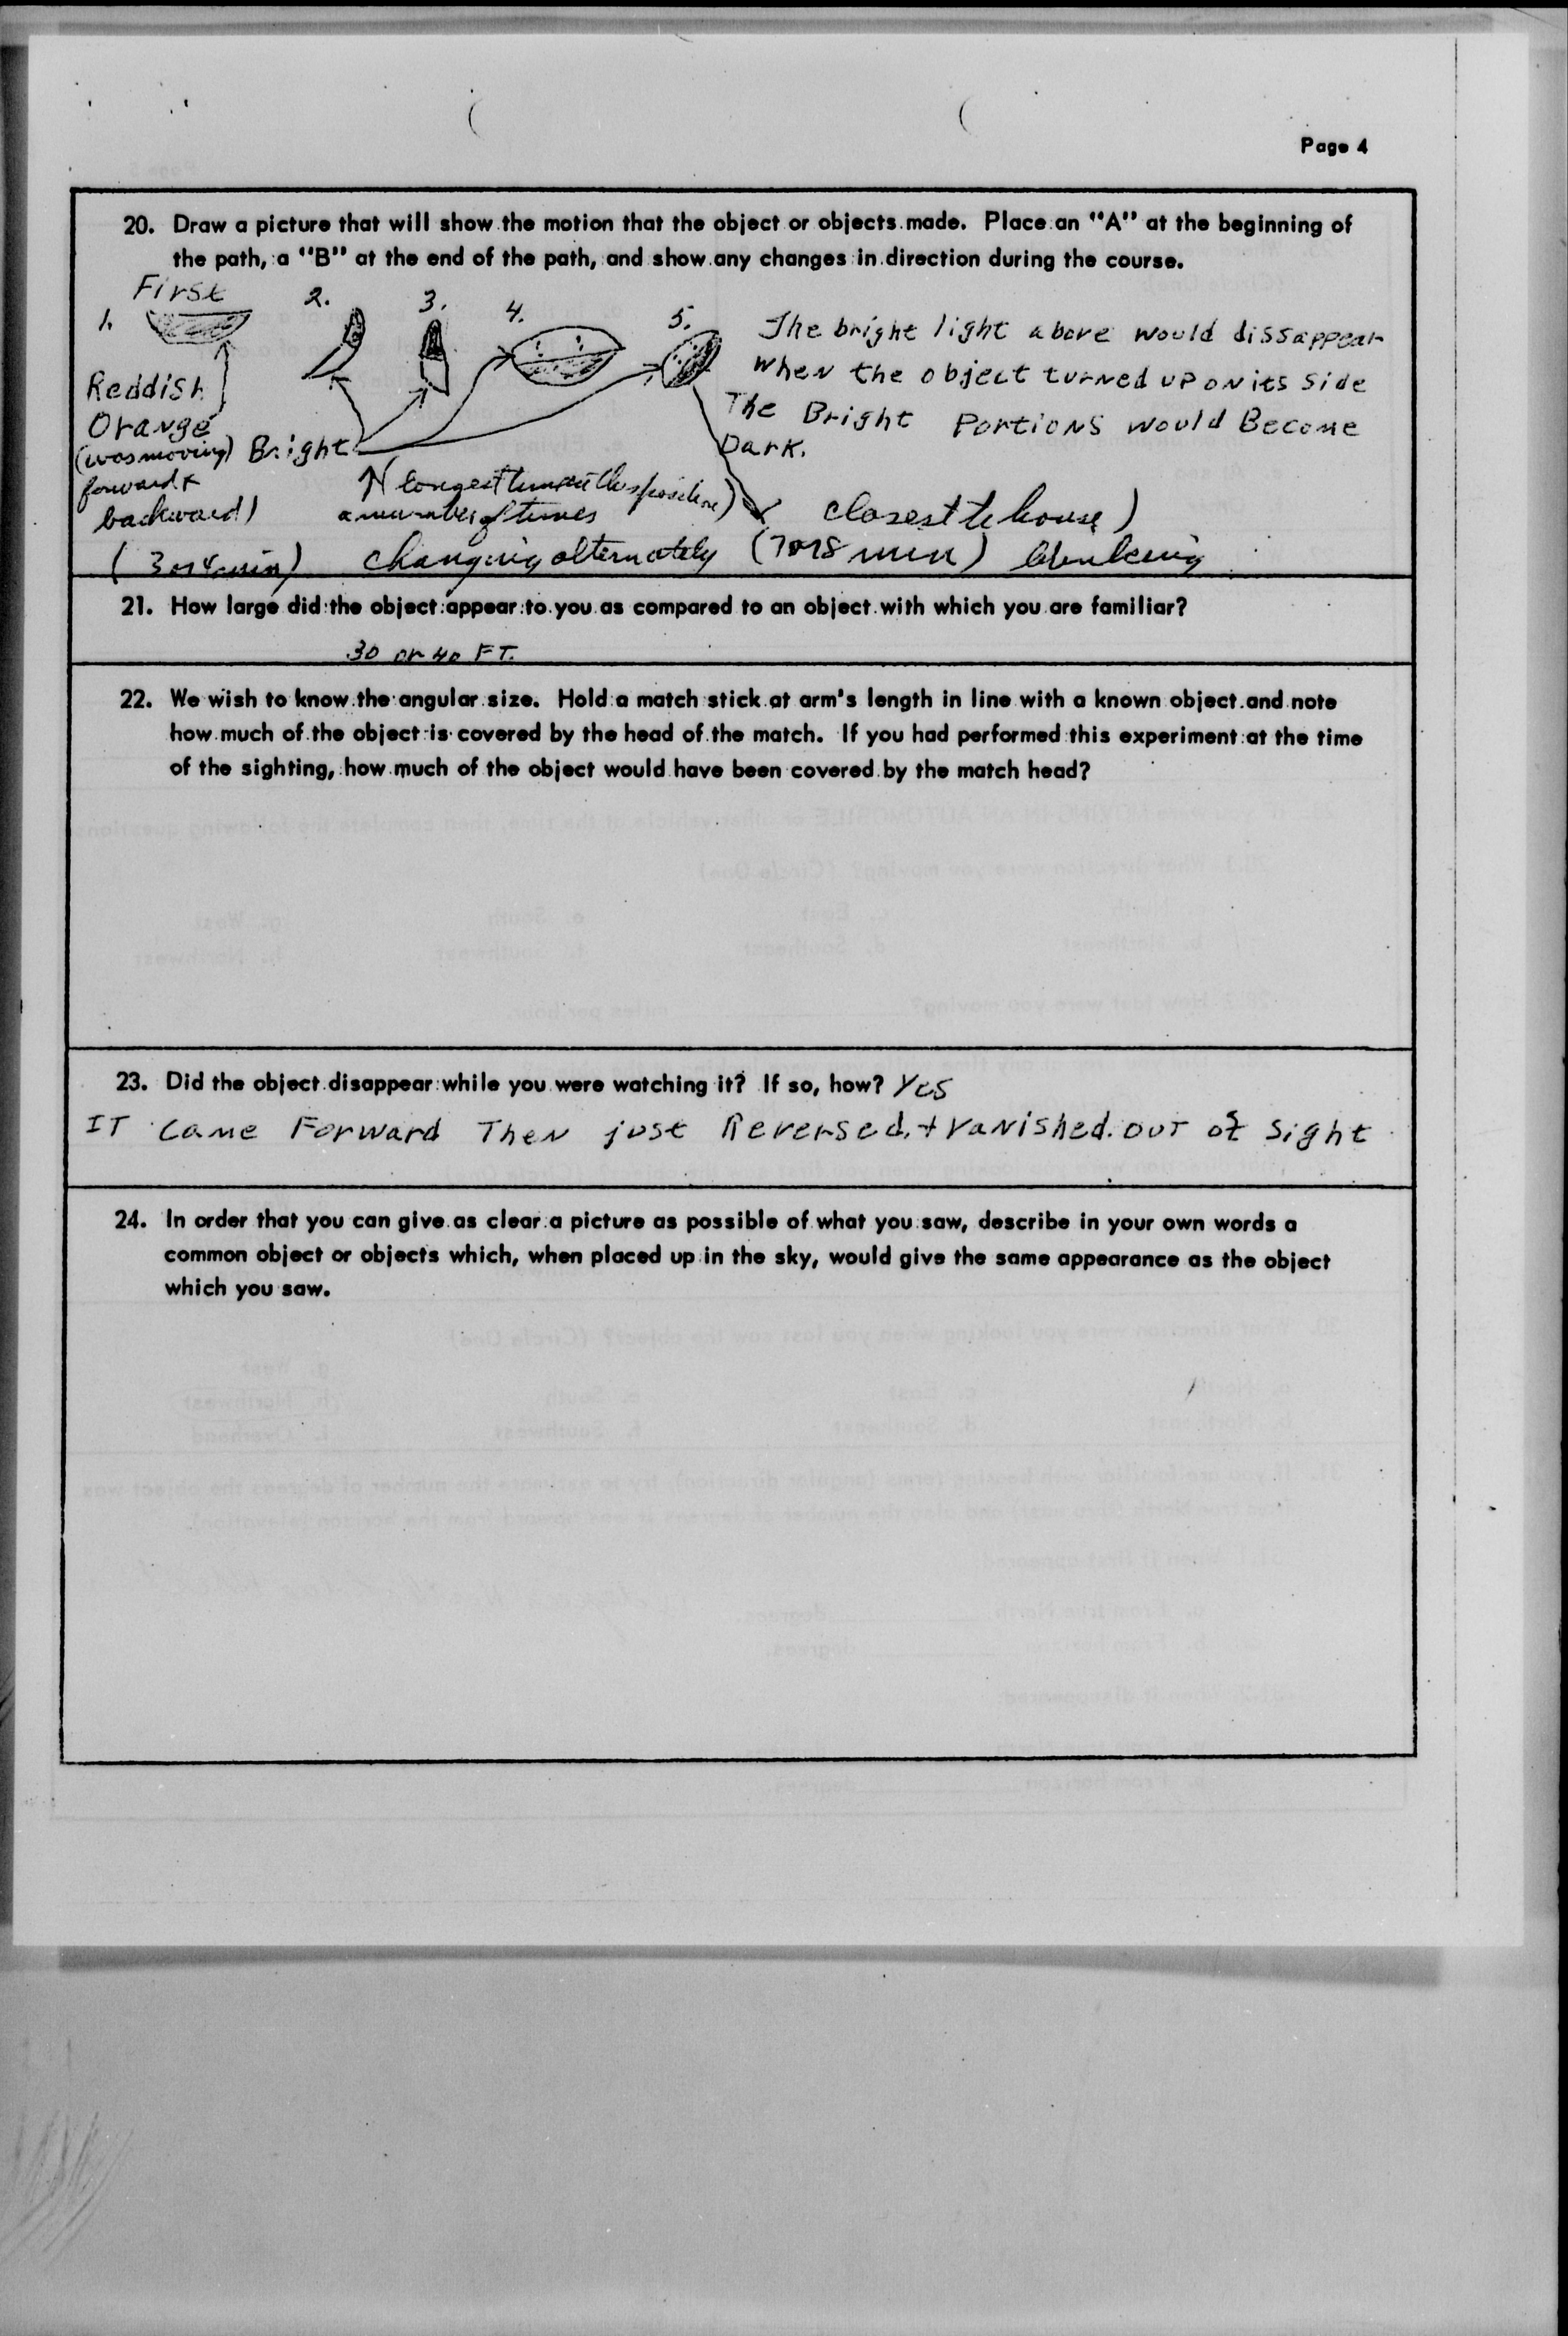 Page 4
20. Draw a picture that will show the motion that the object or objects made. Place an "A" at the beginning of
the path, a "B" at the end of the path, and show any changes in direction during the course.
First
1.
2.
3.
4.
5.
The bright light above would dissappear
when the object turned up on its side
The Bright Portions would Become
Dark.
Reddish
Orange
(was moving)
forward &
backward)
(3 or 4 min)
Bright
longest time in this position)
a number of times
changing alternately (7 or 8 min) blinking
closest to house)
21. How large did the object appear to you as compared to an object with which you are familiar?
30 or 40 FT.
22. We wish to know the angular size. Hold a match stick at arm's length in line with a known object and note
how much of the object is covered by the head of the match. If you had performed this experiment at the time
of the sighting, how much of the object would have been covered by the match head?
23. Did the object disappear while you were watching it? If so, how? Yes
IT Came Forward Then just Reversed. + Vanished. OUT of Sight
24. In order that you can give as clear a picture as possible of what you saw, describe in your own words a
common object or objects which, when placed up in the sky, would give the same appearance as the object
which you saw.